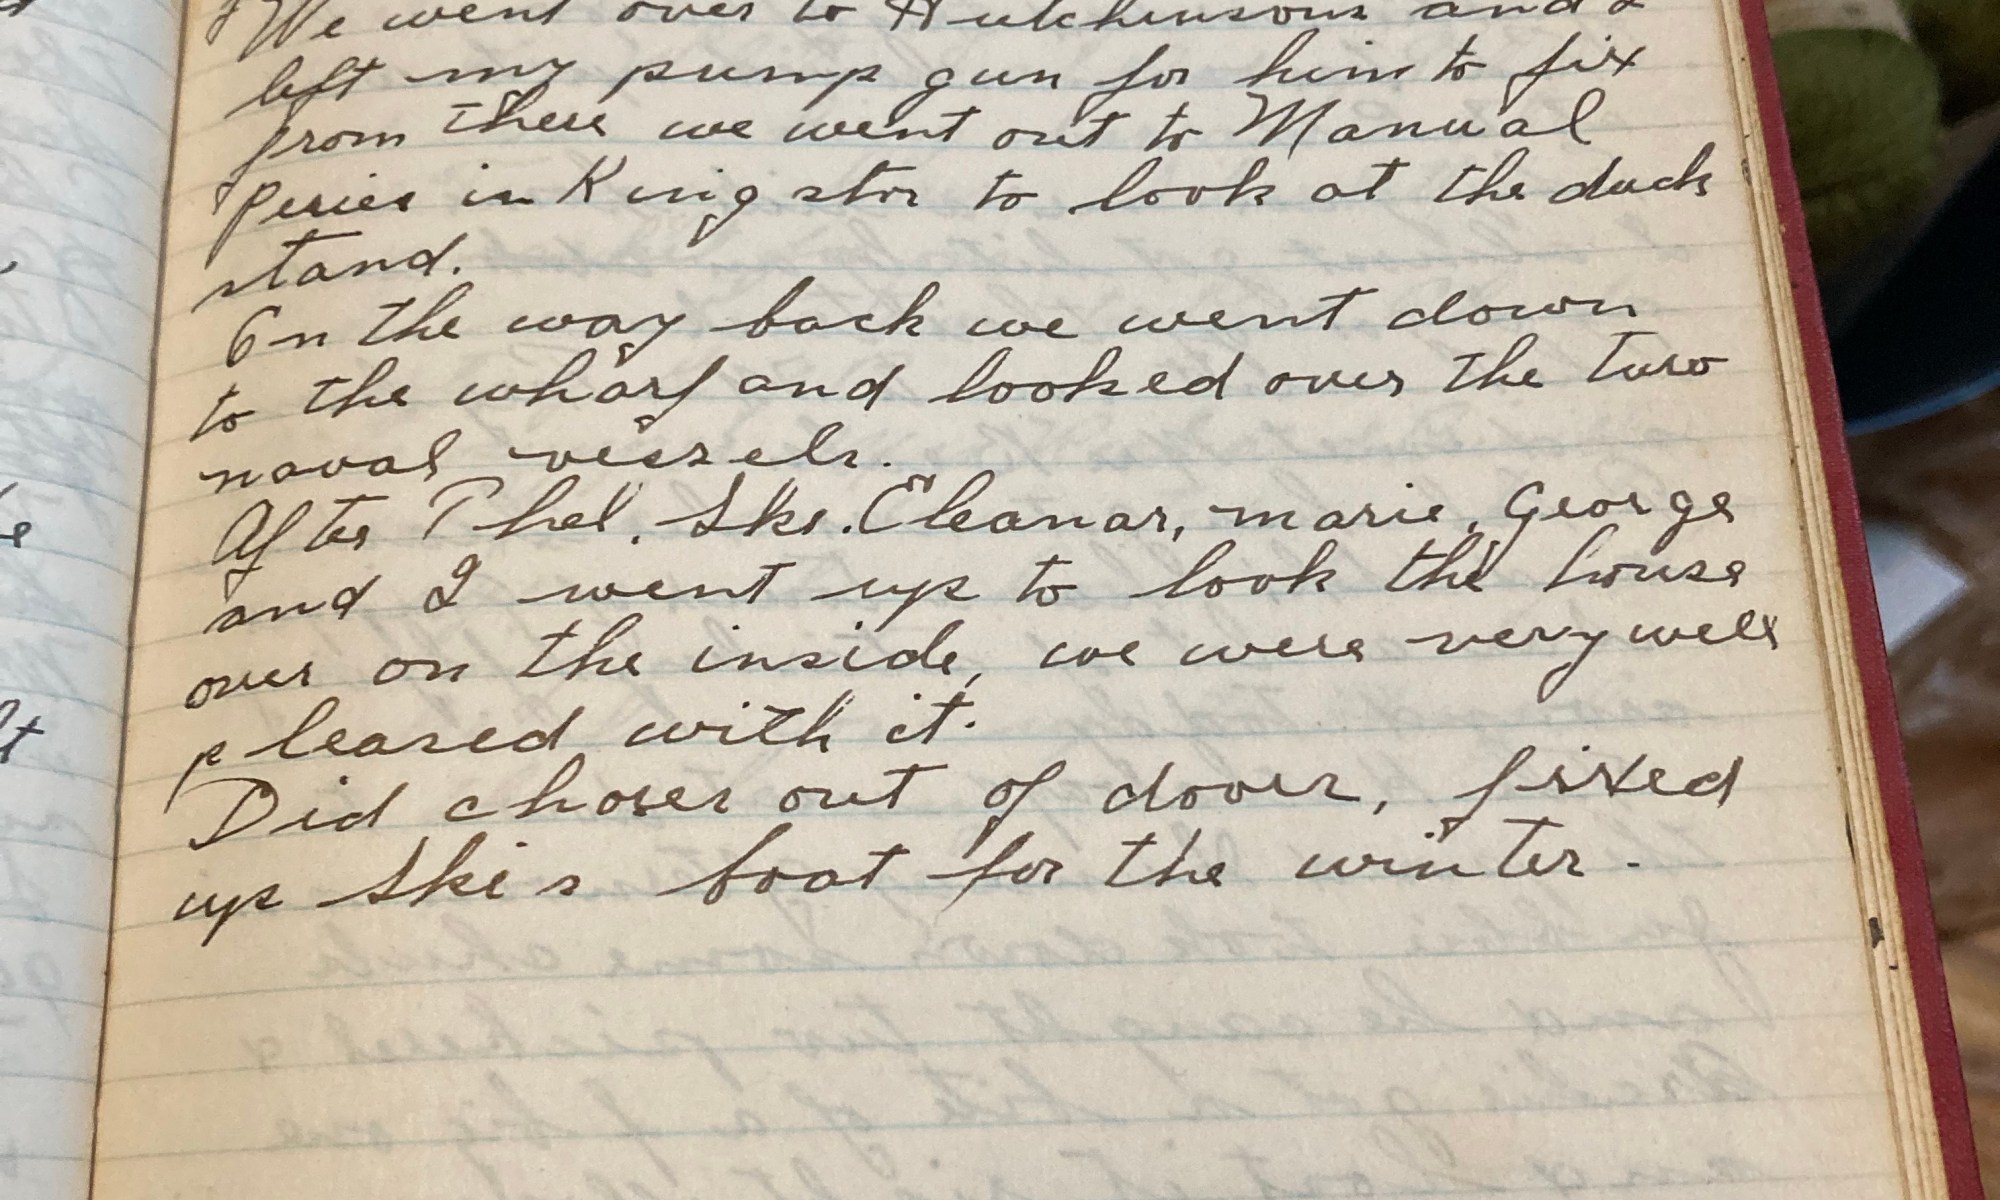 We went over to Hutchinsons and I
left my pump gun for him to fix
from there we went out to Manual
Peries in Kingston to look at the duck
stand.
On the way back we went down
to the wharf and looked over the two
naval vessels.
After Phel. Ske. Eleanar, marie, George
and I went up to look the house
over on the inside, we were very well
pleased with it.
Did chores out of doors, fixed
up Skis boat for the winter.